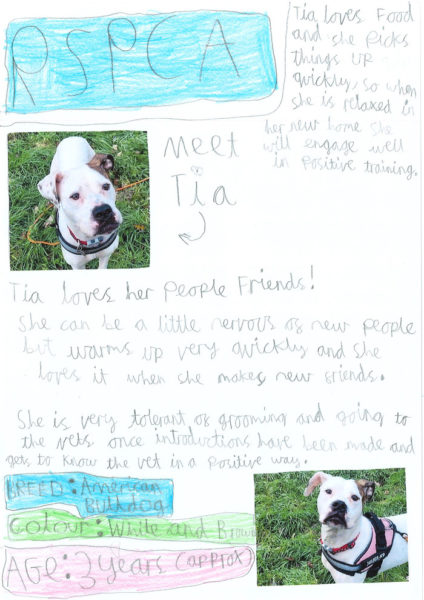 RSPCA
Tia loves Food
and she Picks
things up
quickly, so when
she is relaxed in
her new home she
will engage well
in Positive training.
Meet
Tia
Tia loves her People Friends!
She can be a little nervous of new people
but warms up very quickly and she
loves it when she makes new friends.
She is very tolerant of grooming and going to
the vets once introductions have been made and
gets to know the vet in a Positive way.
BREED: American
Bulldog
Colour: White and Brown
AGE: 3 years (approx)